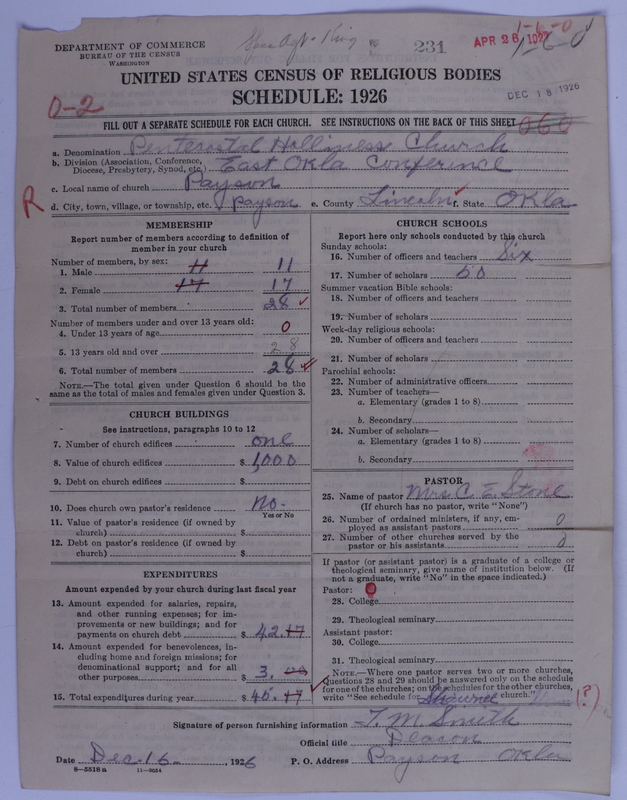 DEPARTMENT OF COMMERCE
BUREAU OF THE CENSUS
WASHINGTON
Spec Agt. King
231
APR 28 1927
1-6-0
DEC 18 1926
UNITED STATES CENSUS OF RELIGIOUS BODIES
SCHEDULE: 1926
0-2
060
FILL OUT A SEPARATE SCHEDULE FOR EACH CHURCH. SEE INSTRUCTIONS ON THE BACK OF THIS SHEET
a. Denomination Penterostal Holliness Church
b. Division (Association, Conference, Diocese, Presbytery, Synod, etc.) East Okla Conference
c. Local name of church Payson
R
d. City, town, village, or township, etc. Payson e. County Lincoln f. State Okla
MEMBERSHIP
Report number of members according to definition of member in your church
Number of members, by sex:
1. Male 11 11
2. Female 17 17
3. Total number of members 28
Number of members under and over 13 years old:
4. Under 13 years of age 0
5. 13 years old and over 28
6. Total number of members 28
NOTE.—The total given under Question 6 should be the same as the total of males and females given under Question 3.
CHURCH BUILDINGS
See instructions, paragraphs 10 to 12
7. Number of church edifices one
8. Value of church edifices $ 1,000
9. Debt on church edifices $
10. Does church own pastor's residence No.
Yes or No
11. Value of pastor's residence (if owned by church) $
12. Debt on pastor's residence (if owned by church) $
EXPENDITURES
Amount expended by your church during last fiscal year
13. Amount expended for salaries, repairs, and other running expenses; for improvements or new buildings; and for payments on church debt $ 42.17
14. Amount expended for benevolences, including home and foreign missions; for denominational support; and for all other purposes $ 3.00
15. Total expenditures during year $ 45.17
CHURCH SCHOOLS
Report here only schools conducted by this church
Sunday schools:
16. Number of officers and teachers Six
17. Number of scholars 50
Summer vacation Bible schools:
18. Number of officers and teachers
19. Number of scholars
Week-day religious schools:
20. Number of officers and teachers
21. Number of scholars
Parochial schools:
22. Number of administrative officers
23. Number of teachers—
a. Elementary (grades 1 to 8)
b. Secondary
24. Number of scholars—
a. Elementary (grades 1 to 8)
b. Secondary
PASTOR
25. Name of pastor Mrs C. E. Stone
(If church has no pastor, write "None")
26. Number of ordained ministers, if any, employed as assistant pastors 0
27. Number of other churches served by the pastor or his assistants 0
If pastor (or assistant pastor) is a graduate of a college or theological seminary, give name of institution below. (If not a graduate, write "No" in the space indicated.)
Pastor:
28. College
29. Theological seminary
Assistant pastor:
30. College
31. Theological seminary
NOTE.—Where one pastor serves two or more churches, Questions 28 and 29 should be answered only on the schedule for one of the churches; on the schedules for the other churches, write "See schedule for church."
(?)
Signature of person furnishing information T. M. Smith
Official title Deacon
Date Dec. 16, 1926 P. O. Address Payson Okla
8—5518a 11—9054